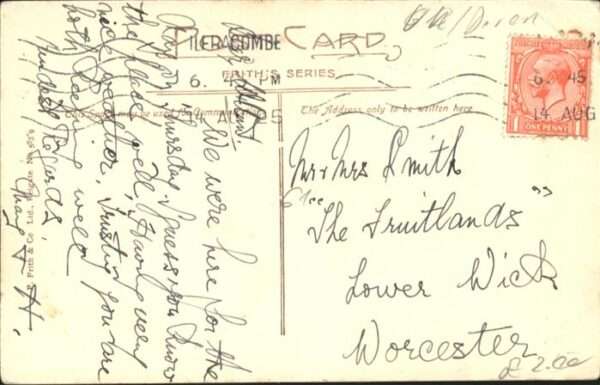 UK/Devon
CARD
ILFRACOMBE
FRITH'S SERIES
6. PM
14 AUG 25
This Space may be used for Communication
The Address only to be written here
6. 45
14 AUG
1 ONE PENNY 1
Dear
We were here for the
day on Thursday. I guess you know
the place well, Having very
nice weather. Trusting you are
both keeping well.
Kindest Regards,
May & H.
Frith & Co. Ltd., Reigate No.
Mr & Mrs Smith
"The Fruitlands"
Lower Wick
Worcester
£ 2.00